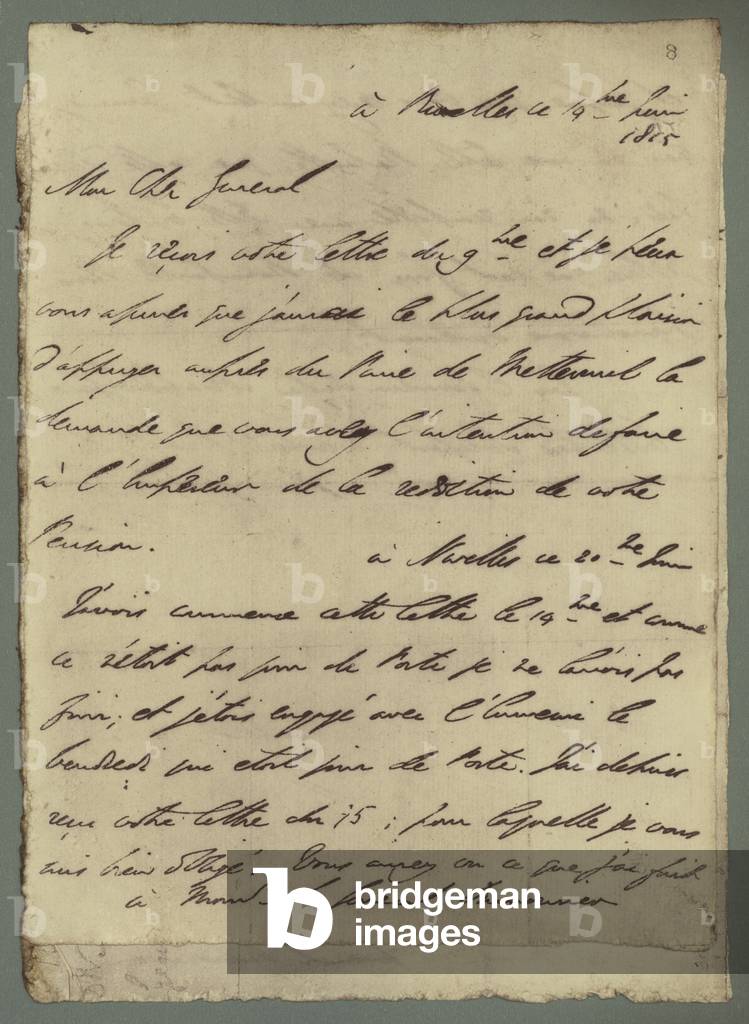 8
à Bruxelles ce 14me Juin
1815
Mon Cher General
Je reçois votre lettre du 9me et je peux
vous assurer que j'aurai le plus grand plaisir
d'appuyer auprès du Prince de Metternich la
demande que vous avez l'intention de faire
à l'Empereur de la reddition de votre
Pension.
à Nivelles ce 20me Juin
J'avois commencé cette lettre le 14me et comme
ce n'étoit pas jour de Poste je ne l'avois pas
fini; et j'étois engagé avec l'Ennemi le
Vendredi qui etoit jour de Poste. J'ai depuis
reçu votre lettre du 15; pour laquelle je vous
suis bien obligé. Vous aurez vu ce que j'ai fait
à
b bridgeman
images